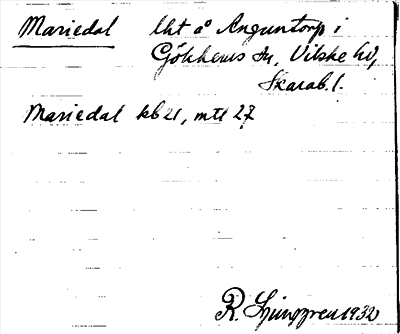 Mariedal lht å Anguntorp i
Gökhems sn, Vilske hd,
Skarab. l.
Mariedal kb 21, mtl 27
R. Ljunggren 1932